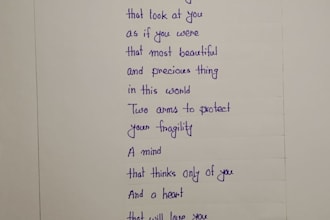 that look at you
as if you were
that most beautiful
and precious thing
in this world
Two arms to protect
your fragility
A mind
that thinks only of you
And a heart
that will love you